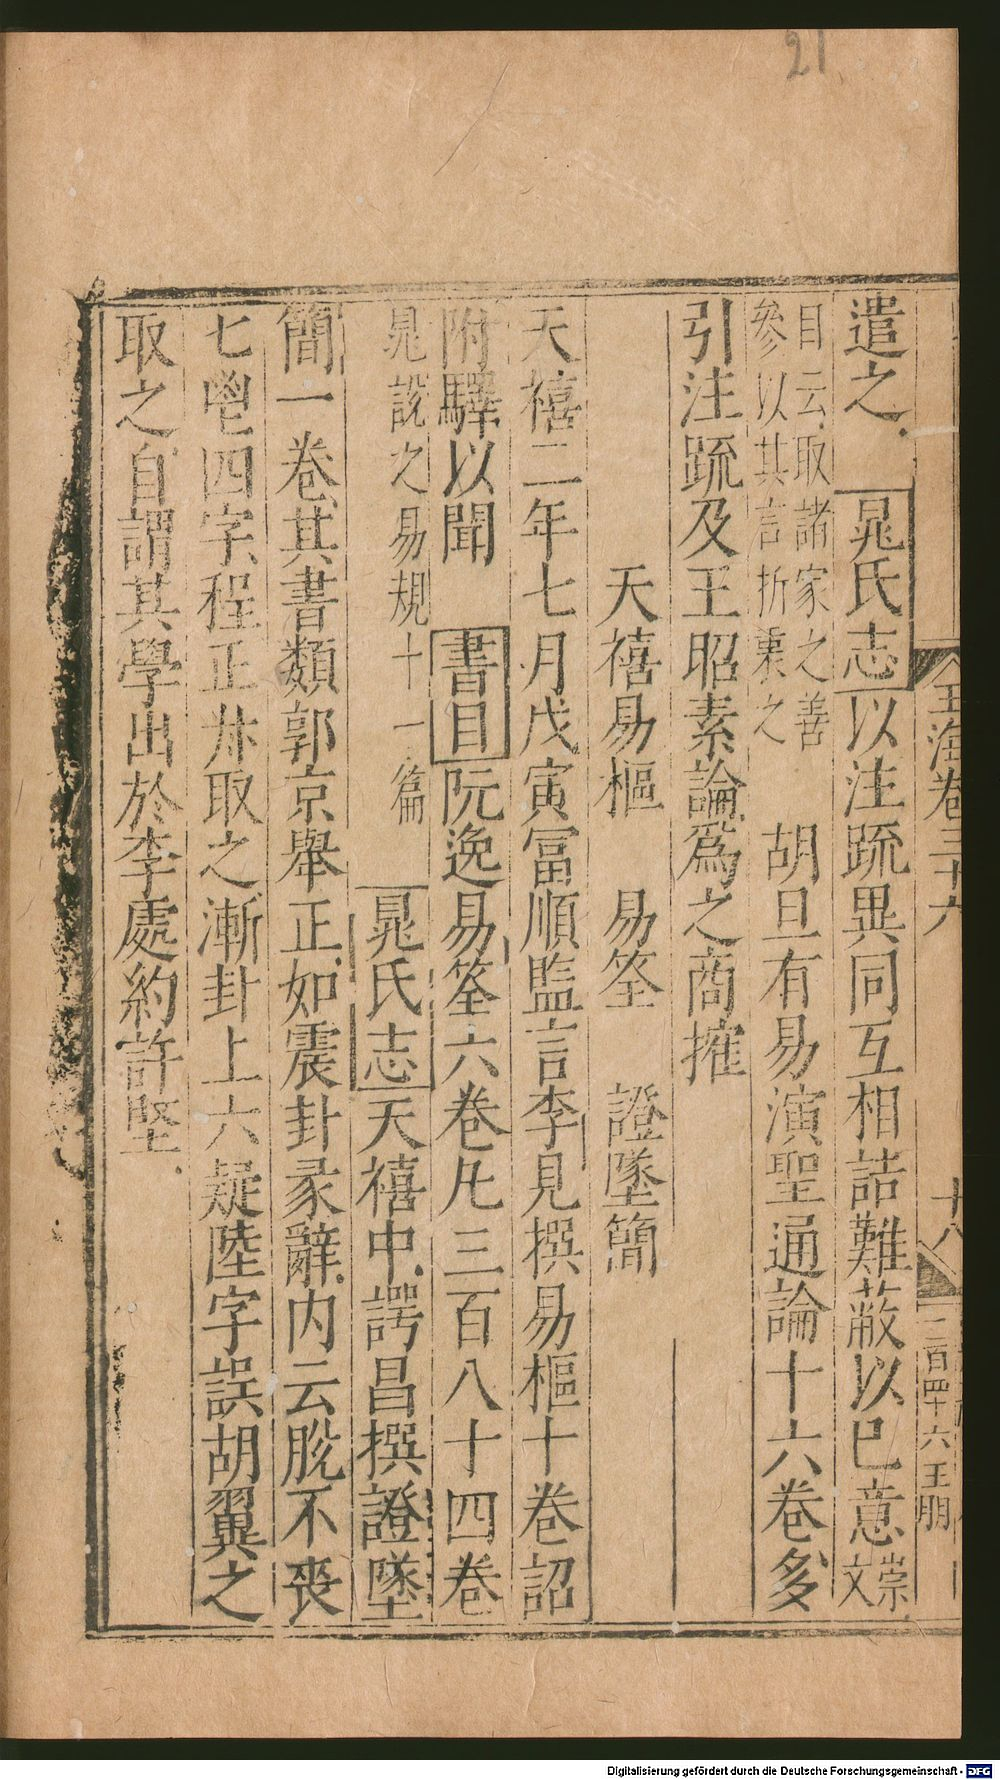 21
玉海卷三十六
十八
二百四十六王朋
遣之晁氏志以注疏異同互相詰難蔽以巳意崇文
目云取諸家之善參以其言折衷之胡旦有易演聖通論十六卷多
引注疏及王昭素論爲之商搉
天禧易樞 易筌 證墜簡
天禧二年七月戊寅冨順監言李見撰易樞十卷詔
附驛以聞 書目阮逸易筌六卷凡三百八十四卷
晁說之易規十一篇 晁氏志天禧中諤昌撰證墜
簡一卷其書類郭京舉正如震卦彖辭内云脫不喪
七鬯四字程正叔取之漸卦上六疑陸字誤胡翼之
取之自謂其學出於李處約許堅
Digitalisierung gefördert durch die Deutsche Forschungsgemeinschaft - DFG